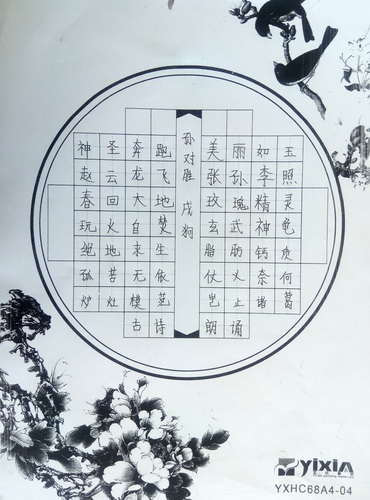 孙对胜 戌狗
神圣奔跑 美丽如玉
赵云龙飞 张孙李照
春回大地 玫瑰精灵
玩火自焚 玄武神龟
绝地求生 脂肪钙质
孤苦无依 仗义奈何
炉灶 岂止诸葛
古诗 朗诵
yixin
YXHC68A4-04